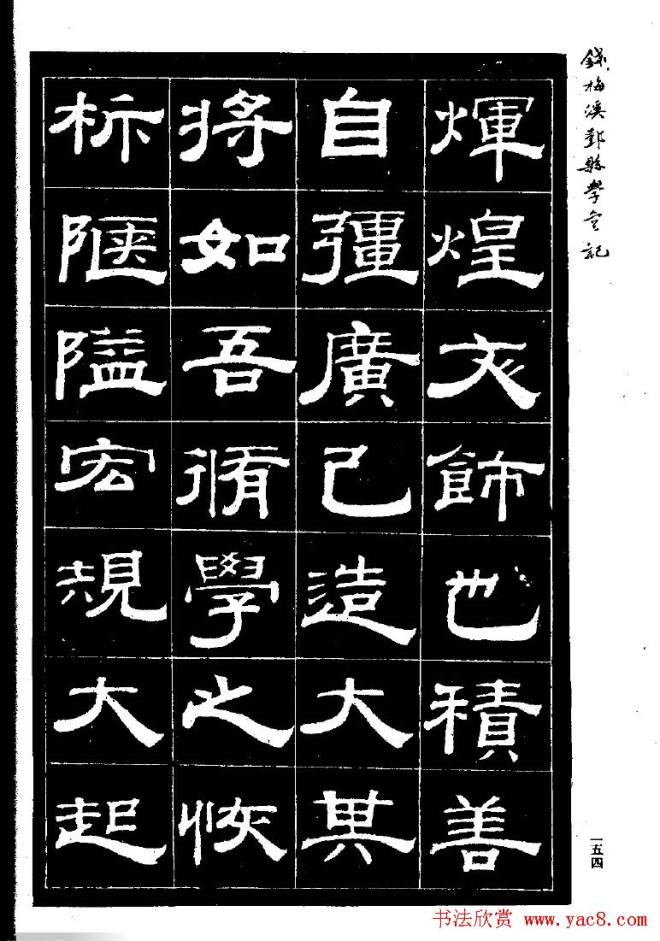 錢梅溪鄞縣學宮記
煇煌文飾也積善
自彊廣己造大其
將如吾脩學之恢
柝陿隘宏規大起
一五四
书法欣赏 www.yac8.com